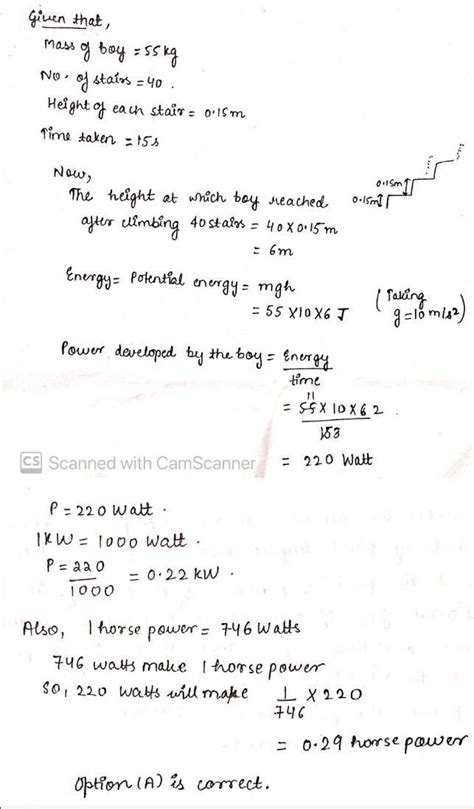 Given that,
Mass of boy = 55kg
No. of stairs = 40.
Height of each stair = 0.15m
Time taken = 15s
Now,
The height at which boy reached
after climbing 40 stairs = 40 X 0.15 m
= 6m
0.15m
0.15m
Energy = Potential energy = mgh
= 55 X10 X6 J
(Taking
g=10 m/s²)
Power, developed by the boy = Energy
time
11
= 55 X 10 X 6 2
15 3
CS Scanned with CamScanner
= 220 Watt
P = 220 Watt.
1KW = 1000 Watt.
P = 220
1000
= 0.22 KW.
Also, 1 horse power = 746 Watts
746 watts make 1 horse power
So, 220 watts will make 1 X 220
746
= 0.29 horse power
Option (A) is correct.